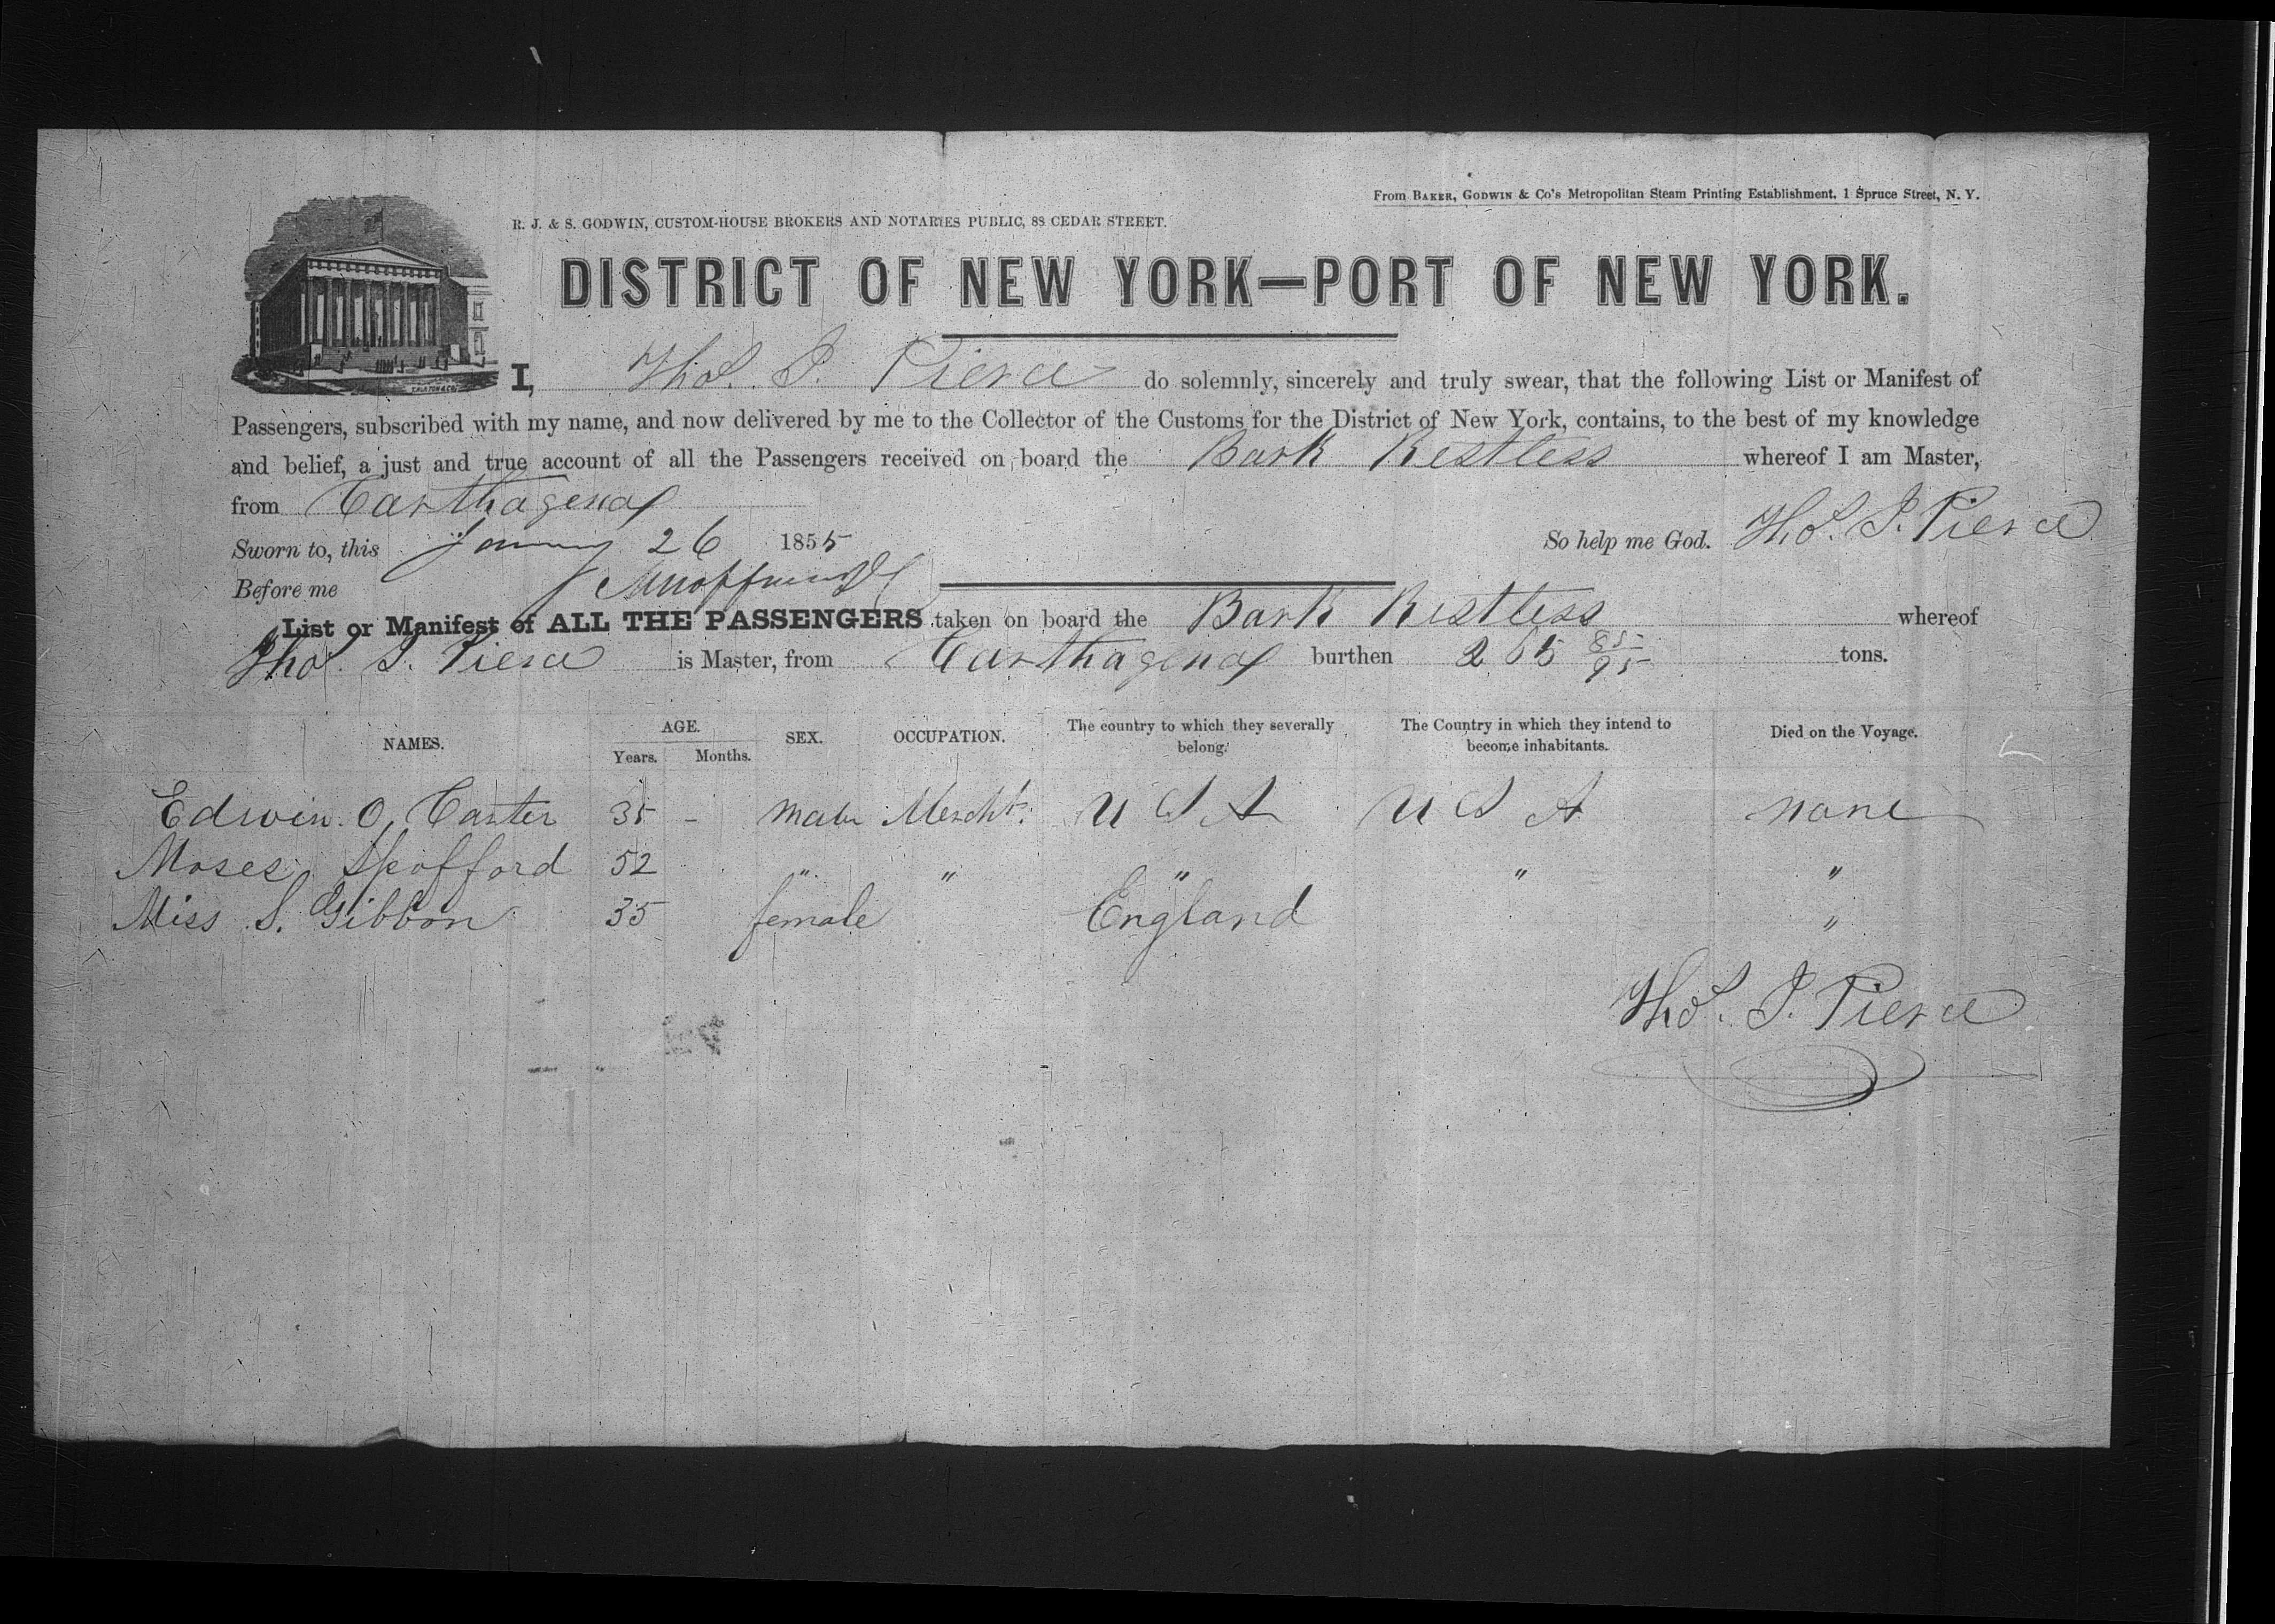 From BAKER, GODWIN & Co's Metropolitan Steam Printing Establishment, 1 Spruce Street, N. Y.
R. J. & S. GODWIN, CUSTOM-HOUSE BROKERS AND NOTARIES PUBLIC, 88 CEDAR STREET.
DISTRICT OF NEW YORK—PORT OF NEW YORK.
I, Thos. J. Pierce do solemnly, sincerely and truly swear, that the following List or Manifest of
Passengers, subscribed with my name, and now delivered by me to the Collector of the Customs for the District of New York, contains, to the best of my knowledge
and belief, a just and true account of all the Passengers received on board the Bark Restless whereof I am Master,
from Carthagena
Sworn to, this January 26 1855 So help me God. Thos. J. Pierce
Before me
List or Manifest of ALL THE PASSENGERS taken on board the Bark Restless whereof
Thos. J. Pierce is Master, from Carthagena burthen 85/95 tons.
NAMES. AGE. Years. Months. SEX. OCCUPATION. The country to which they severally belong. The Country in which they intend to become inhabitants. Died on the Voyage.
Edwin O. Carter 35 - male Mercht. U S A U S A none
Moses Spofford 52 " " " " "
Miss S. Gibbon 35 female England "
Thos. J. Pierce